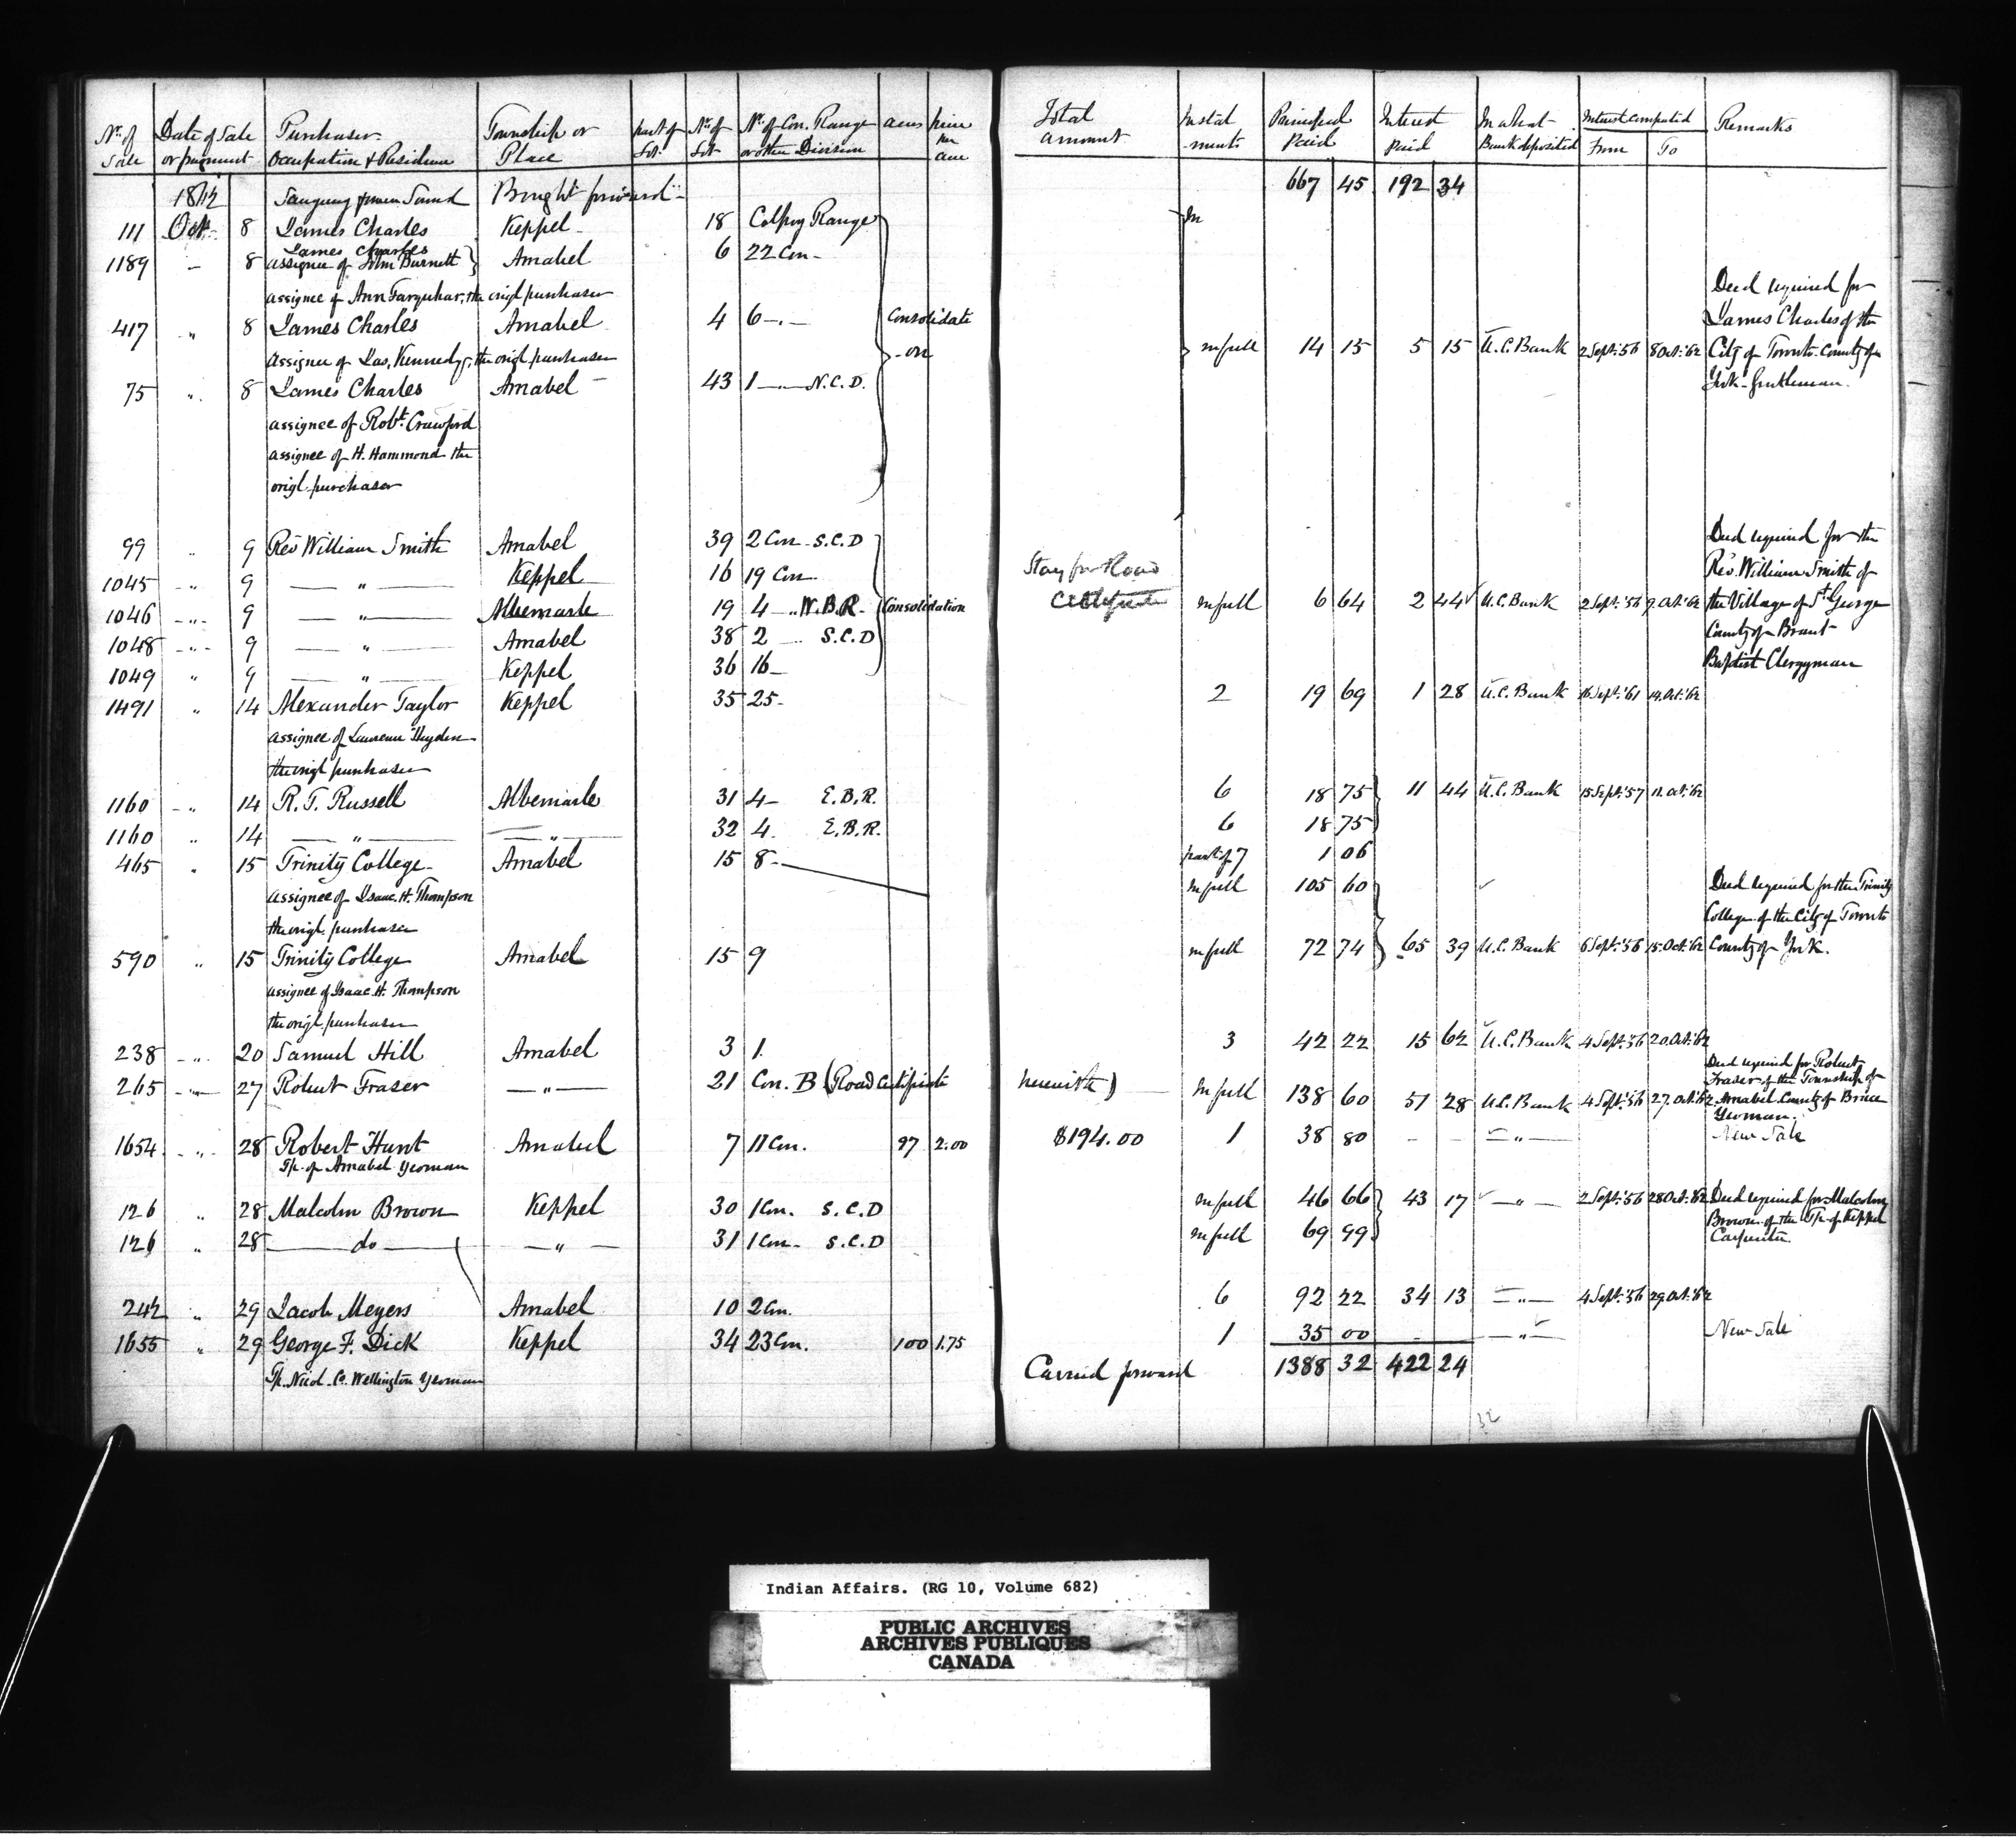 No. of Sale | Date of Sale or payment | Purchaser Occupation & Residence | Township or Place | part of Lot | No. of Lot | No. of Con. Range or other Division | acres | price per acre | Total amount | Instalments | Principal Paid | Interest Paid | In what Bank deposited | Interest computed From | To | Remarks
1862 | Saugeen & Owen Sound | Brought forward | 667 45 | 192 34
111 | Oct. 8 | James Charles | Keppel | 18 | Colpoy Range | In
1189 | – 8 | James Charles assignee of John Burnett | Amabel | 6 | 22 Con
assignee of Ann Farquhar, the origl purchaser | Deed required for
417 | " 8 | James Charles | Amabel | 4 | 6 –"– | Consolidate | James Charles of the
assignee of Jas. Kennedy, the origl purchaser | -on | in full | 14 15 | 5 15 | U.C. Bank | 2 Sept. '56 | 8 Oct. '62 | City of Toronto County of
75 | " 8 | James Charles | Amabel | 43 | 1 –"– N.C.D. | York – Gentleman.
assignee of Robt. Crawford
assignee of H. Hammond the
origl. purchaser
99 | " 9 | Rev William Smith | Amabel | 39 | 2 Con S.C.D | Deed required for the
1045 | " 9 | –"– | Keppel | 16 | 19 Con. | Stay for Road | Rev. William Smith of
1046 | " 9 | –"– | Albemarle | 19 | 4 –" W.B.R. | Consolidation | Certificate | in full | 6 64 | 2 44 | U.C. Bank | 2 Sept. '56 | 9. Oct. '62 | the Village of St. George
1048 | " 9 | –"– | Amabel | 38 | 2 –"– S.C.D | County of Brant
1049 | " 9 | –"– | Keppel | 36 | 16 – | Baptist Clergyman
1491 | " 14 | Alexander Taylor | Keppel | 35 | 25 – | 2 | 19 69 | 1 28 | U.C. Bank | 16 Sept. '61 | 14. Oct. '62
assignee of Lawrence Heyden
the origl purchaser
1160 | " 14 | R. T. Russell | Albemarle | 31 | 4 – E.B.R. | 6 | 18 75 | 11 44 | U.C. Bank | 15 Sept. '57 | 11. Oct. '62
1160 | " 14 | –"– | –"– | 32 | 4. E.B.R. | 6 | 18 75
465 | " 15 | Trinity College | Amabel | 15 | 8 – | part of 7 | 1 06
assignee of Isaac. H. Thompson | in full | 105 60 | Deed required for the Trinity
the origl. purchaser | College of the City of Toronto
590 | " 15 | Trinity College | Amabel | 15 | 9 | in full | 72 74 | 65 39 | U.C. Bank | 6 Sept. '56 | 15. Oct. '62 | County of York.
assignee of Isaac. H. Thompson
the origl. purchaser
238 | " 20 | Samuel Hill | Amabel | 3 | 1. | 3 | 42 22 | 15 62 | U.C. Bank | 4 Sept. '56 | 20. Oct. '62
265 | " 27 | Robert Fraser | –"– | 21 | Con. B (Road Certificate herewith) | in full | 138 60 | 51 28 | U.C. Bank | 4 Sept. '56 | 27. Oct. '62 | Deed required for Robert Fraser of the Township of Amabel County of Bruce Yeoman.
1654 | " 28 | Robert Hunt | Amabel | 7 | 11 Con. | 97 | 2.00 | $194.00 | 1 | 38 80 | – | – | –"– | New Sale
Tp. of Amabel Yeoman
126 | " 28 | Malcolm Brown | Keppel | 30 | 1 Con. S.C.D | in full | 46 66 | 43 17 | –"– | 2 Sept. '56 | 28 Oct. '62 | Deed required for Malcolm
126 | " 28 | do | –"– | 31 | 1 Con. S.C.D | in full | 69 99 | Brown of the Tp. of Keppel Carpenter.
242 | " 29 | Jacob Meyers | Amabel | 10 | 2 Con. | 6 | 92 22 | 34 13 | –"– | 4 Sept. '56 | 29. Oct. '62
1655 | " 29 | George F. Dick | Keppel | 34 | 23 Con. | 100 | 1.75 | 1 | 35 00 | –"– | New Sale
Tp. Nicol Co. Wellington Yeoman | Carried forward | 1388 32 | 422 24
32
Indian Affairs. (RG 10, Volume 682)
PUBLIC ARCHIVES
ARCHIVES PUBLIQUES
CANADA